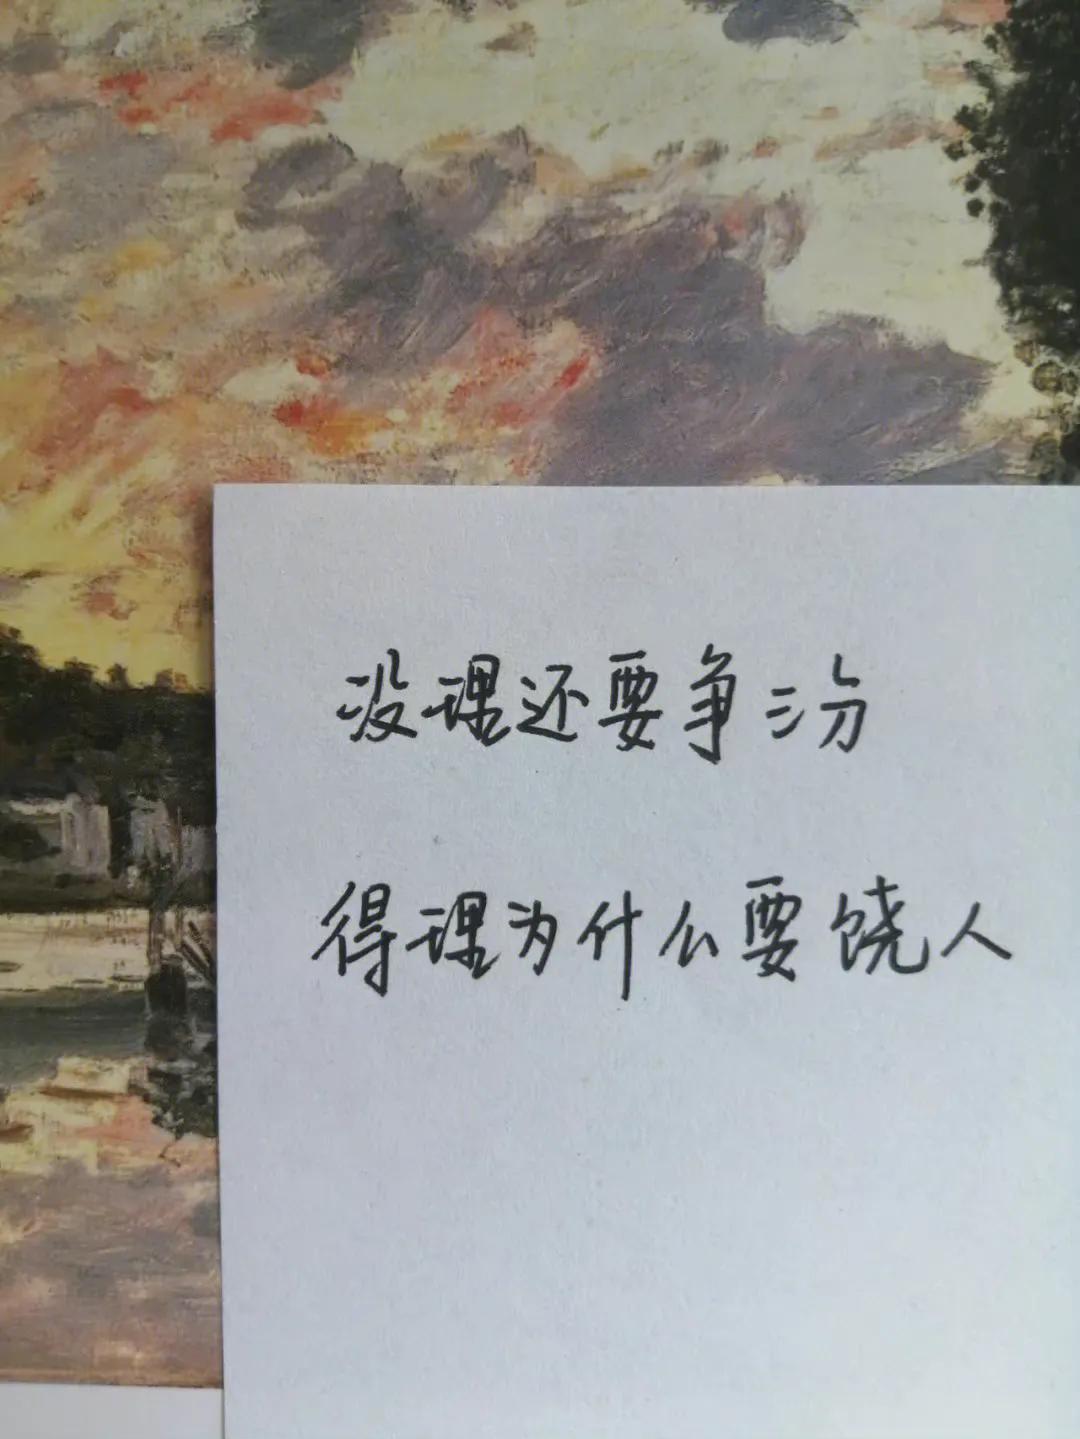 没理还要争三分
得理为什么要饶人